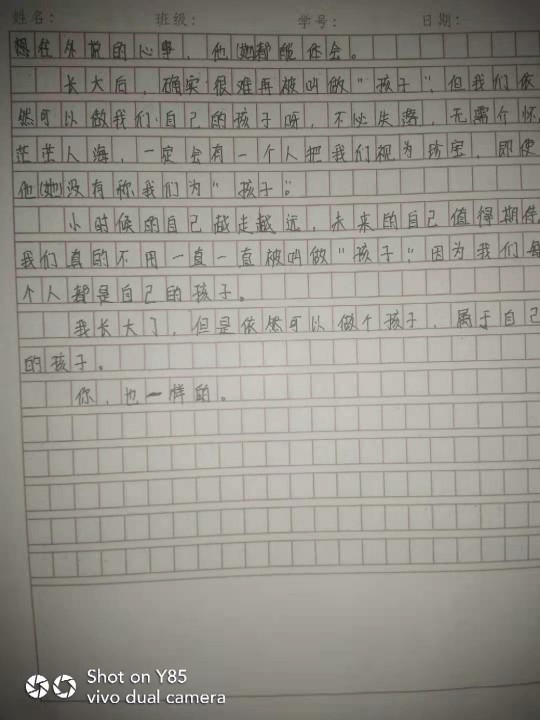 姓名： 班级： 学号： 日期：
想往外说的心事，他(她)都能体会。
长大后，确实很难再被叫做“孩子”，但我们依
然可以做我们自己的孩子呀，不必失落，无需介怀，
茫茫人海，一定会有一个人把我们视为珍宝，即使
他(她)没有称我们为“孩子”。
小时候的自己越走越远，未来的自己值得期待，
我们真的不用一直一直被叫做“孩子”，因为我们每
个人都是自己的孩子。
我长大了，但是依然可以做个孩子，属于自己
的孩子。
你，也一样的。
Shot on Y85
vivo dual camera